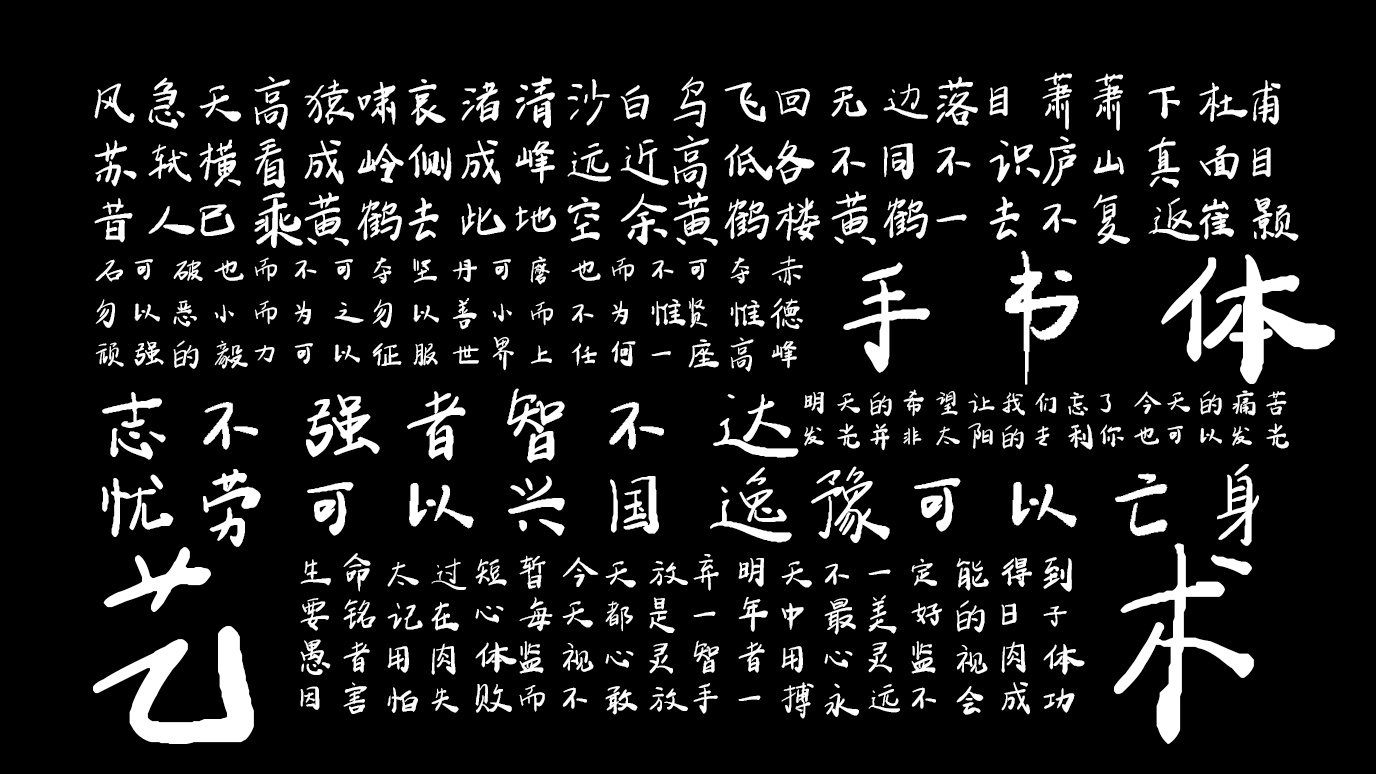 风急天高猿啸哀渚清沙白鸟飞回无边落目萧萧下杜甫
苏轼横看成岭侧成峰远近高低各不同不识庐山真面目
昔人已乘黄鹤去此地空余黄鹤楼黄鹤一去不复返崔颢
石可破也而不可夺坚丹可磨也而不可夺赤
勿以恶小而为之勿以善小而不为惟贤惟德
顽强的毅力可以征服世界上任何一座高峰
手书体
志不强者智不达
明天的希望让我们忘了今天的痛苦
发光并非太阳的专利你也可以发光
忧劳可以兴国逸豫可以亡身
艺术
生命太过短暂今天放弃明天不一定能得到
要铭记在心每天都是一年中最美好的日子
愚者用肉体监视心灵智者用心灵监视肉体
因害怕失败而不敢放手一搏永远不会成功